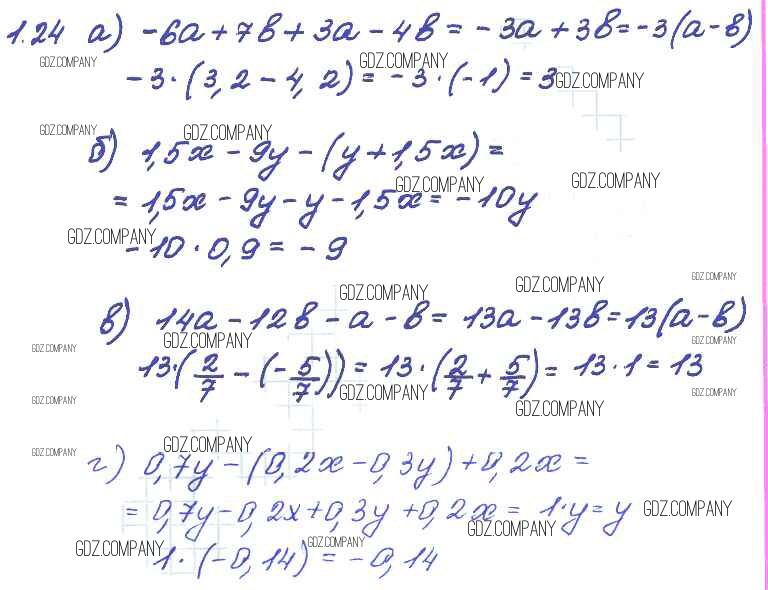 1.24 а) -6a + 7b + 3a - 4b = -3a + 3b = -3(a-b)
GDZ.COMPANY GDZ.COMPANY
-3·(3,2 - 4,2) = -3·(-1) = 3 GDZ.COMPANY
GDZ.COMPANY GDZ.COMPANY
б) 1,5x - 9y - (y + 1,5x) =
GDZ.COMPANY GDZ.COMPANY
= 1,5x - 9y - y - 1,5x = -10y
GDZ.COMPANY
-10·0,9 = -9
GDZ.COMPANY GDZ.COMPANY GDZ.COMPANY
в) 14a - 12b - a - b = 13a - 13b = 13(a-b)
GDZ.COMPANY GDZ.COMPANY GDZ.COMPANY
13·(2/7 - (-5/7)) = 13·(2/7 + 5/7) = 13·1 = 13
GDZ.COMPANY GDZ.COMPANY GDZ.COMPANY GDZ.COMPANY
GDZ.COMPANY GDZ.COMPANY
г) 0,7y - (0,2x - 0,3y) + 0,2x =
= 0,7y - 0,2x + 0,3y + 0,2x = 1·y = y GDZ.COMPANY
GDZ.COMPANY GDZ.COMPANY GDZ.COMPANY
1·(-0,14) = -0,14